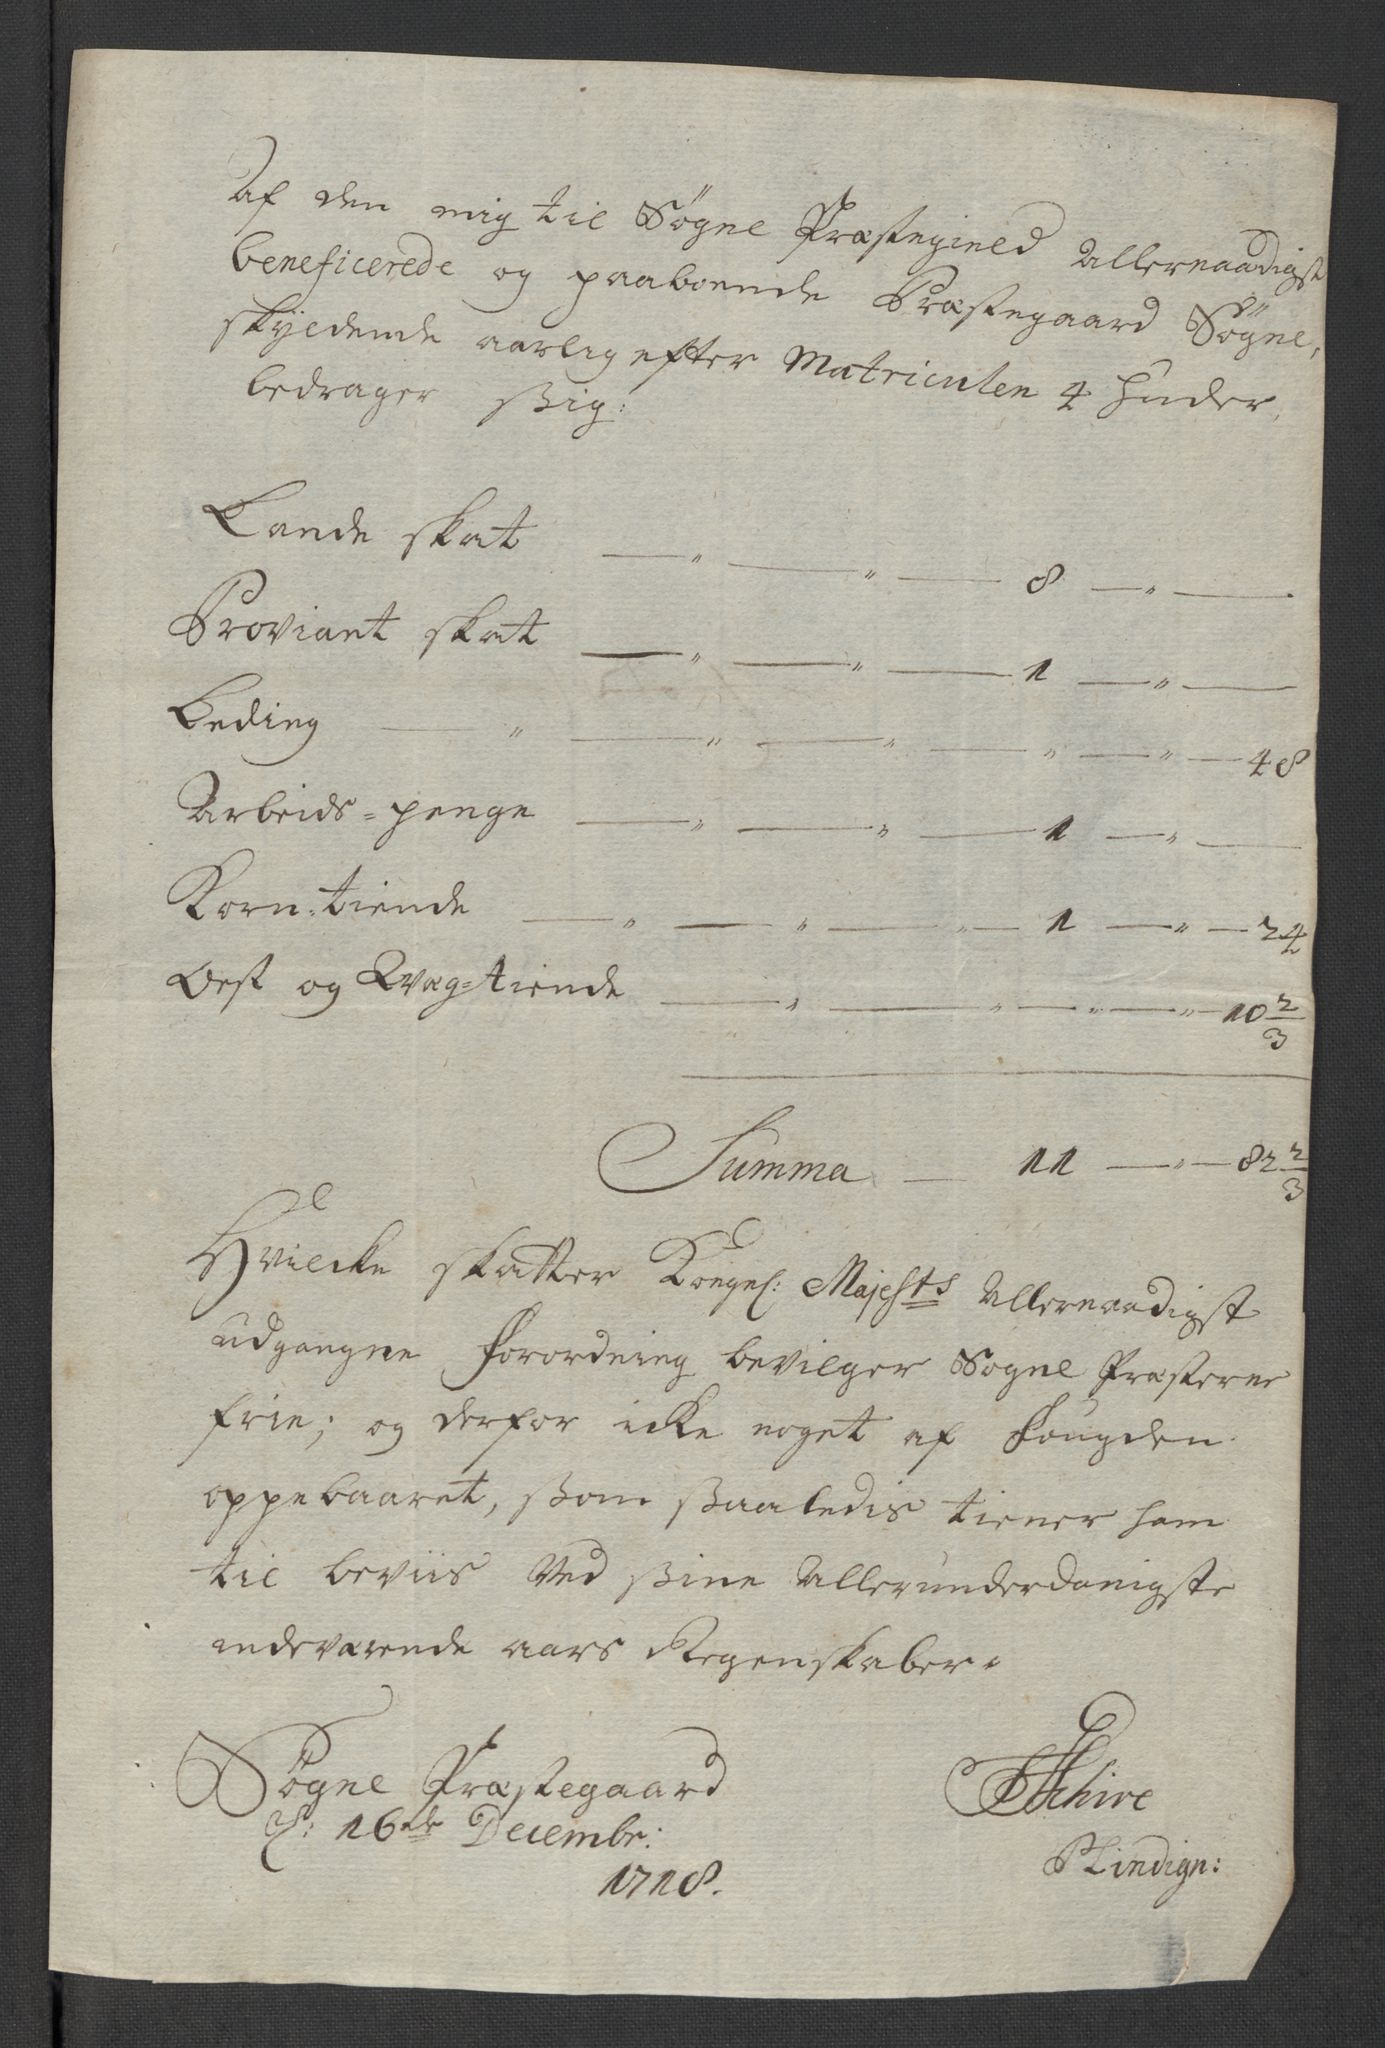 Af den mig til Søgne Præstegield Allernaadigst
beneficerede og paaboende Præstegaard Søgne,
skyldende aarlig efter Matriculen 4 huder,
bedrager sig:
Lande skat — " — " — 8 — " —
Proviant skat — " — " — 1 — " —
Leding — " — " — " — " — " — 48
Arbeids-penge — " — " — 1 — " —
Korn-tiende — " — " — " — 1 — " — 24
Ost og Qvæg-tiende — " — " — " — " — 10 2/3
Summa — 11 — " — 82 2/3
Hvilcke skatter Kongel: Majests Allernaadigst
udgangne Forordning bevilger Sogne Præsterne
frie; og derfor icke noget af Fougden
oppebaaret, som saaledis tiener ham
til beviis ved sine Allerunderdanigste
indeværende aars Regenskaber.
Søgne Præstegaard
d: 16de Decembr:
1718.